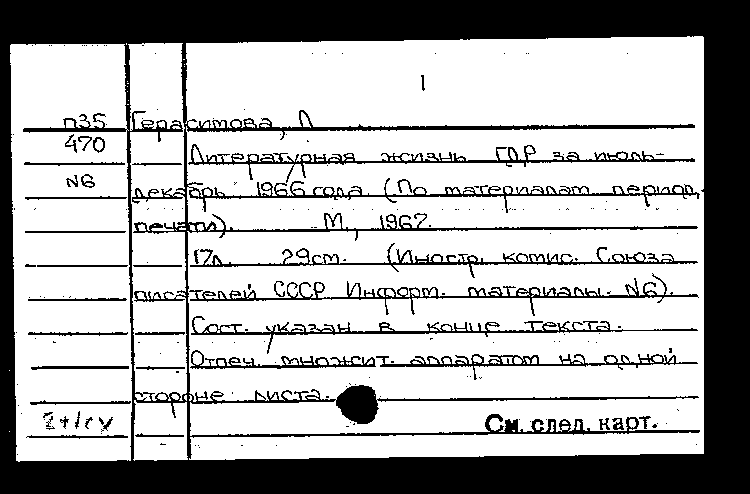 1
п35 Герасимова, Л
470
Литературная жизнь ГДР за июль-
N6 декабрь 1966 года (По материалам период.
печати). М., 1967.
17л. 29см. (Иностр. комис. Союза
писателей СССР Информ. материалы. N6).
Сост. указан в конце текста.
Отпеч. множит. аппаратом на одной
стороне листа.
См. след. карт.